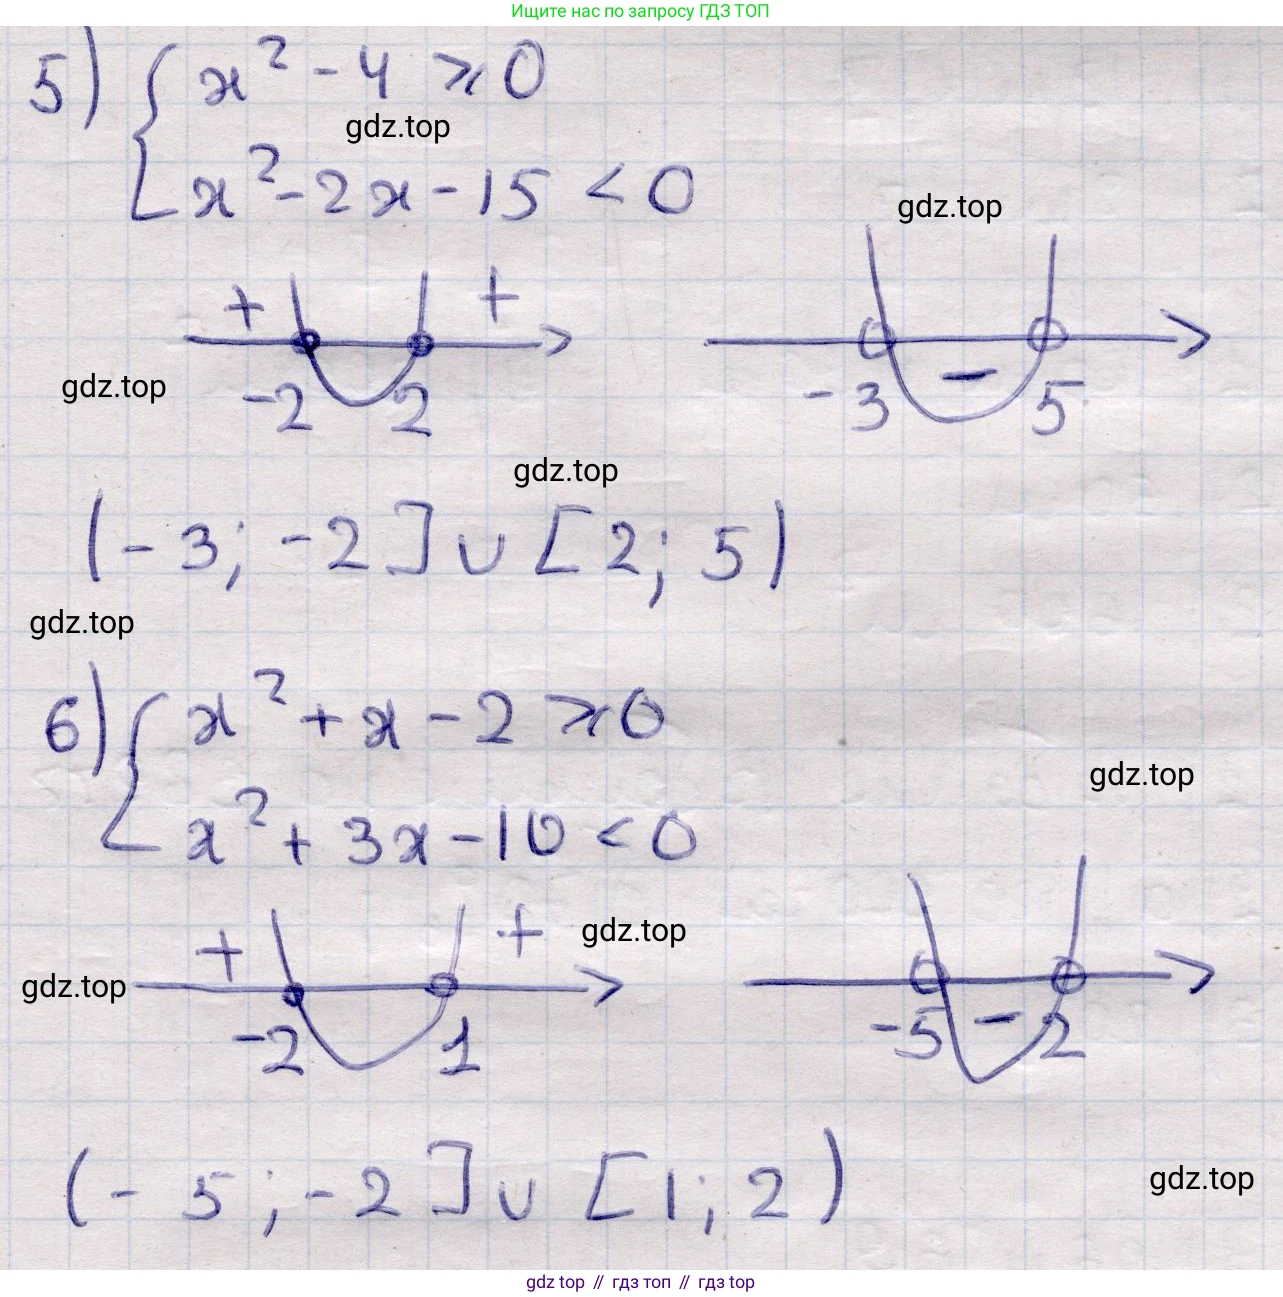 Ищите нас по запросу ГДЗ ТОП
5) { x² - 4 ⩾ 0
gdz.top
x² - 2x - 15 < 0
gdz.top
+ +
-
gdz.top
-2 2 -3 5
gdz.top
(-3; -2] ∪ [2; 5)
gdz.top
6) { x² + x - 2 ⩾ 0
gdz.top
x² + 3x - 10 < 0
+ +
gdz.top
gdz.top
-
-2 1 -5 2
(-5; -2] ∪ [1; 2)
gdz.top
gdz top // гдз топ // гдз top